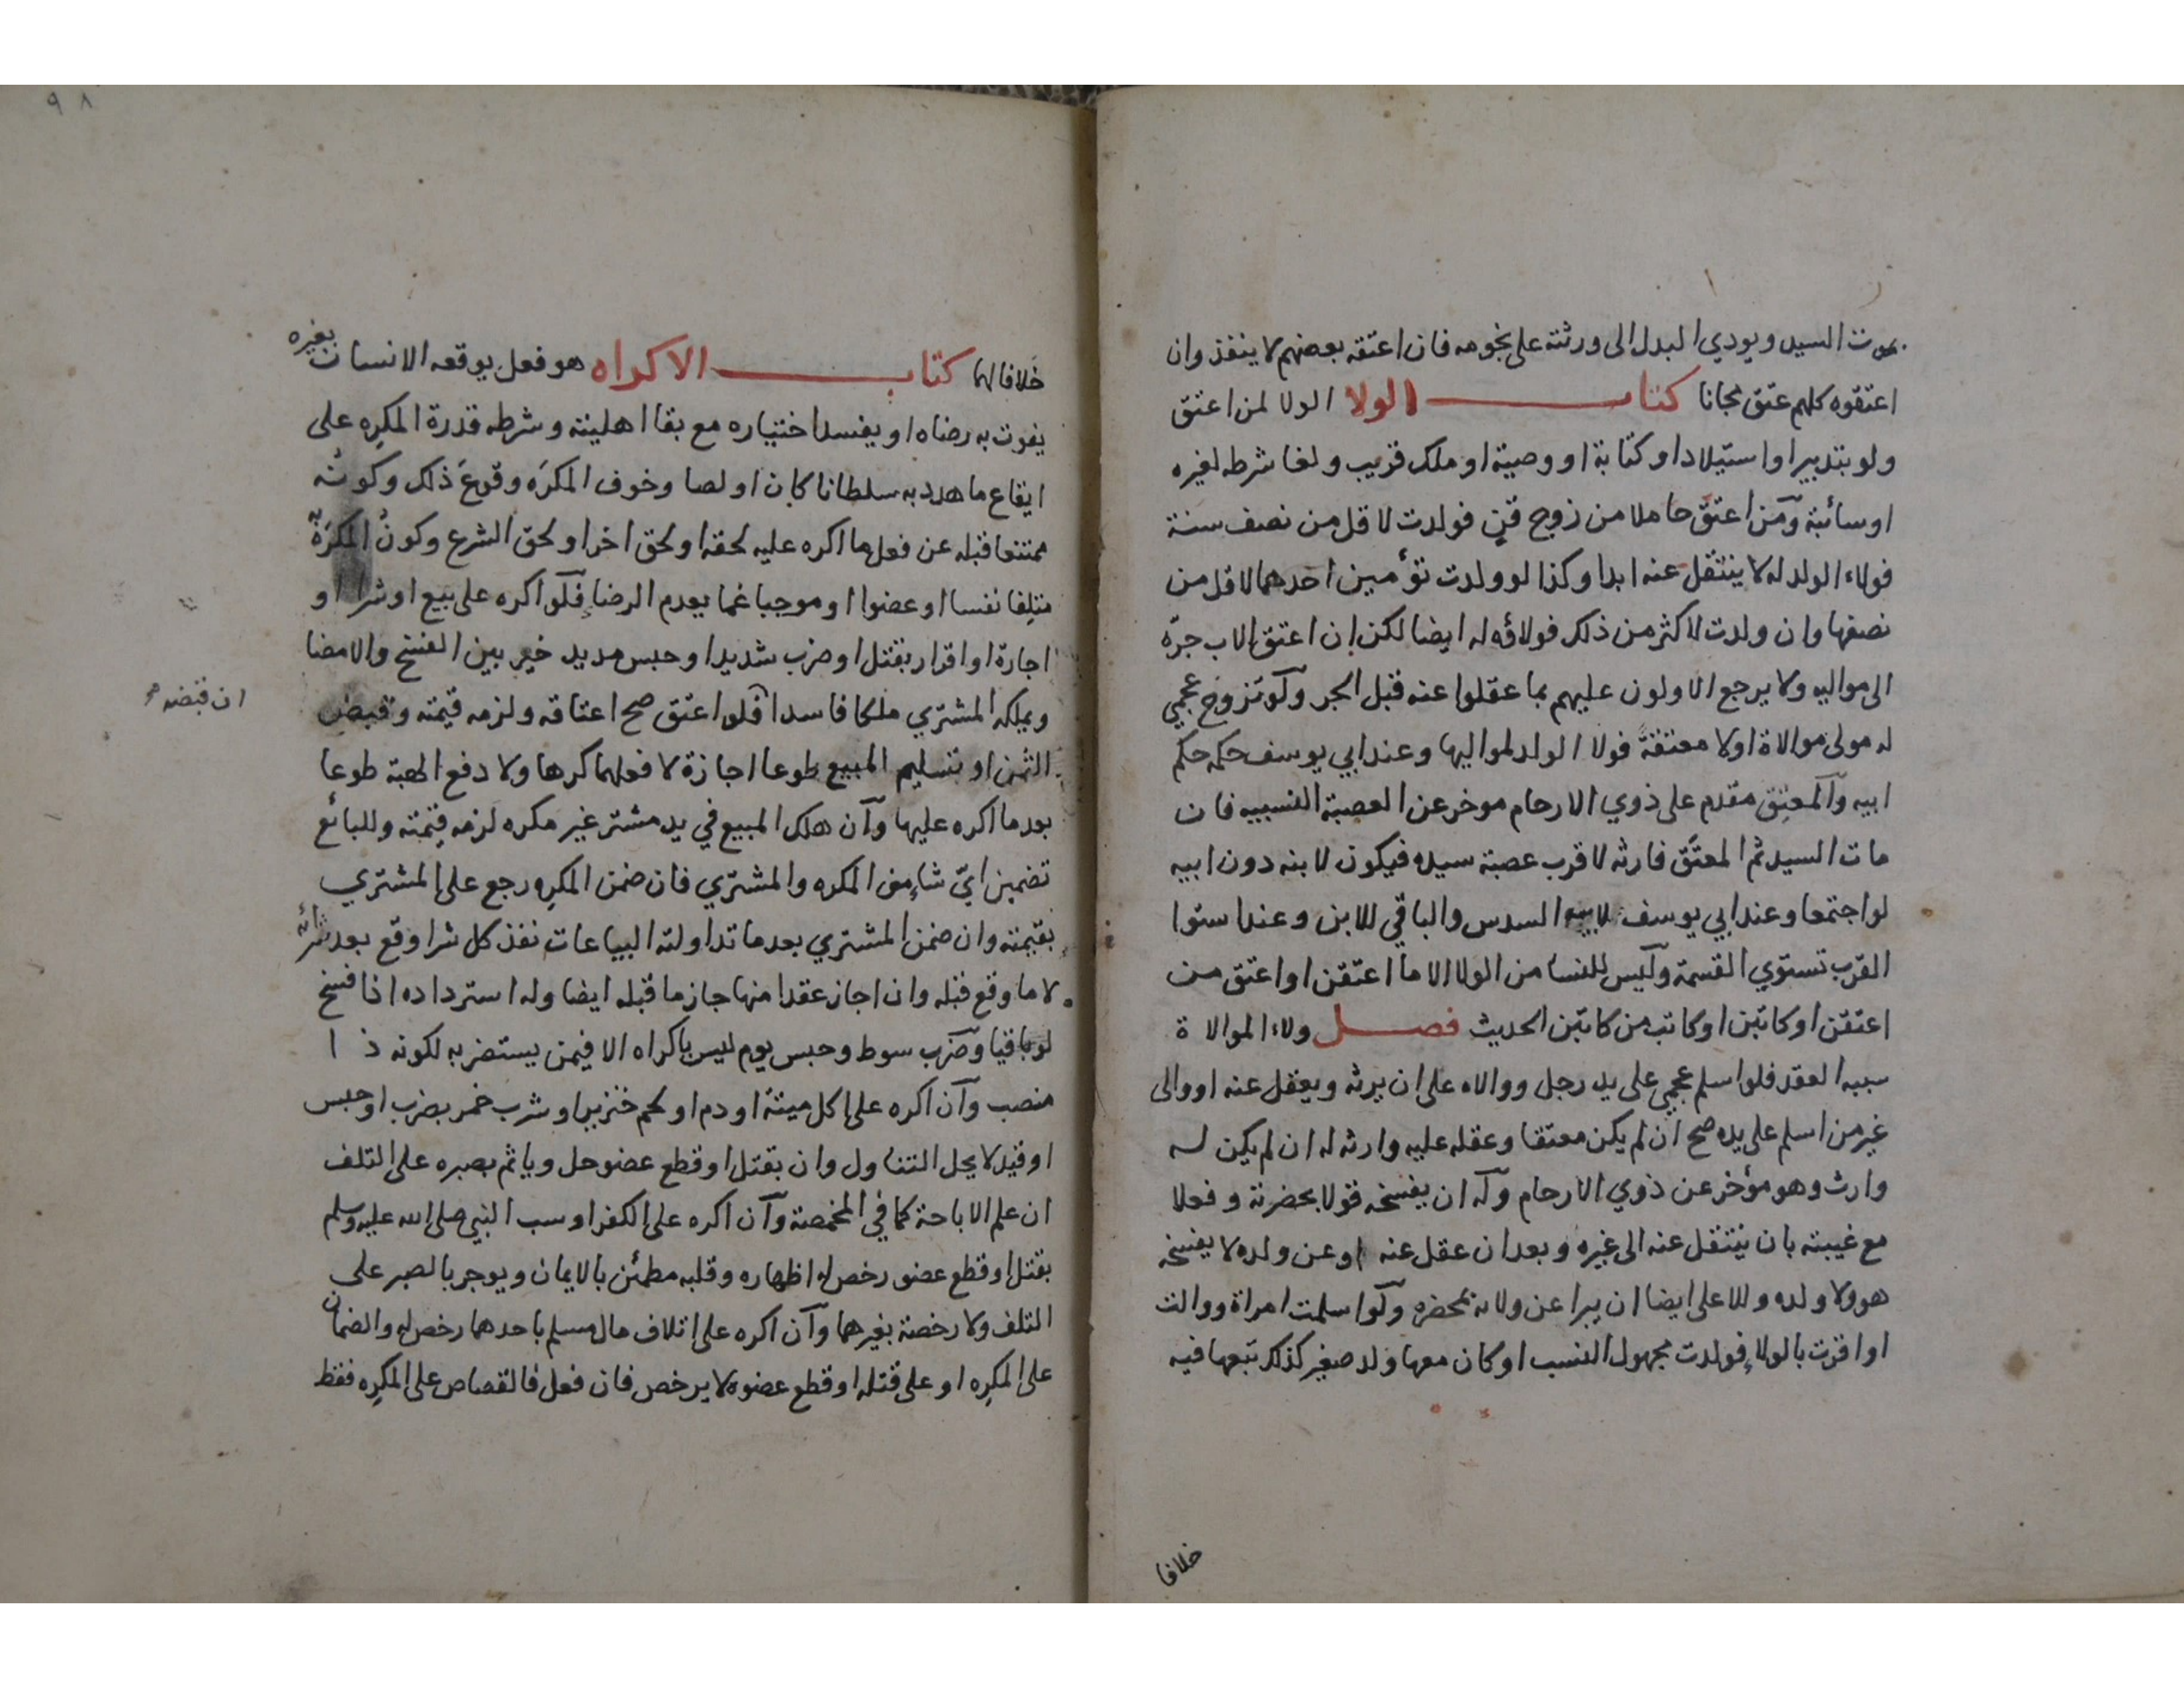 بموت السيد ويودي البدل الى ورثته على نجومه فان اعتقه بعضهم لا ينفذ وان
اعتقوه كلهم عتق مجانا كتاب الولا الولا لمن اعتق
ولو بتدبير او استيلاد او كتابة او وصية او ملك قريب ولغا شرطه لغيره
او سائبة ومن اعتق حاملا من زوج قن فولدت لاقل من نصف سنة
فولاء الولد له لا ينتقل عنه ابدا وكذا لو ولدت توأمين احدهما لاقل من
نصفها وان ولدت لاكثر من ذلك فولاؤه له ايضا لكن ان اعتق الاب جرّه
الى مواليه ولا يرجع الاولون عليهم بما عقلوا عنه قبل الجر ولو تزوج عجمي
له مولى موالاة اولا معتقة فولا الولد لمواليها وعند ابي يوسف حكمه حكم
ابيه والمعتِق مقدم على ذوي الارحام موخر عن العصبة النسبيه فان
مات السيد ثم المعتَق فارثه لاقرب عصبة سيده فيكون لابنه دون ابيه
لو اجتمعا وعند ابي يوسف لابيه السدس والباقي للابن وعند استوا
القرب تستوي القسمة وليس للنسا من الولا الا ما اعتقن او اعتق من
اعتقن او كاتبن او كاتب من كاتبن الحديث فصل ولاء الموالاة
سببه العقد فلو اسلم عجمي على يد رجل ووالاه على ان يرثه ويعقل عنه او والى
غير من اسلم على يده صح ان لم يكن معتقا وعقله عليه وارثه له ان لم يكن له
وارث وهو مؤخر عن ذوي الارحام وله ان يفسخه قولا بحضرته وفعلا
مع غيبته بان ينتقل عنه الى غيره وبعد ان عقل عنه او عن ولده لا يفسخه
هو ولا ولده وللاعلى ايضا ان يبرا عن ولائه بمحضره ولو اسلمت امراة ووالت
او اقرت بالولاء فولدت مجهول النسب او كان معها ولد صغير كذلك تبعها فيه
خلافا
٩٨
خلافا لهما كتاب الاكراه هو فعل يوقعه الانسان بغيره
يفوت به رضاه او يفسد اختياره مع بقا اهليته وشرطه قدرة المكرِه على
ايقاع ما هدد به سلطانا كان او لصا وخوف المكرَه وقوعَ ذلك وكونُه
ممتنعا قبله عن فعل ما اكره عليه لحقه او لحق اخر او لحق الشرع وكونُ المكرَه
متلِفا نفسا او عضوا او موجبا غما يعدم الرضا فلو اكره على بيع او شرا او
اجارة او اقرار بقتل او ضرب شديد او حبس مديد خير بين الفسخ والامضا
ويملكه المشتري ملكا فاسدا فلو اعتق صح اعتاقه ولزمه قيمته وقبض
ان قبضه
الثمن او تسليم المبيع طوعا اجازة لا فعلهما كرها ولا دفع الهبة طوعا
بعد ما اكره عليها وآن هلك المبيع في يد مشتر غير مكره لزمه قيمته وللبائع
تضمين ايّ شاء من المكره والمشتري فان ضمن المكرِه رجع على المشتري
بقيمته وان ضمن المشتري بعد ما تداولته البياعات نفذ كل شرا وقع بعد شرائه
لا ما وقع قبله وان اجاز عقدا منها جاز ما قبله ايضا وله استرداده اذا فسخ
لو باقيا وضرب سوط وحبس يوم ليس باكراه الا فيمن يستضر به لكونه ذا
منصب وآن اكره على اكل ميتة او دم او لحم خنزير او شرب خمر بضرب او حبس
او قيد لا يحل التناول وان بقتل او قطع عضو حل وياثم بصبره على التلف
ان علم الاباحة كما في المخمصة وآن اكره على الكفر او سب النبي صلى الله عليه وسلم
بقتل او قطع عضو رخص له اظهاره وقلبه مطمئن بالايمان ويوجر بالصبر على
التلف ولا رخصة بغيرهما وآن اكره على اتلاف مال مسلم باحدهما رخص له والضمان
على المكرِه او على قتله او قطع عضوه لا يرخص فان فعل فالقصاص على المكرِه فقط